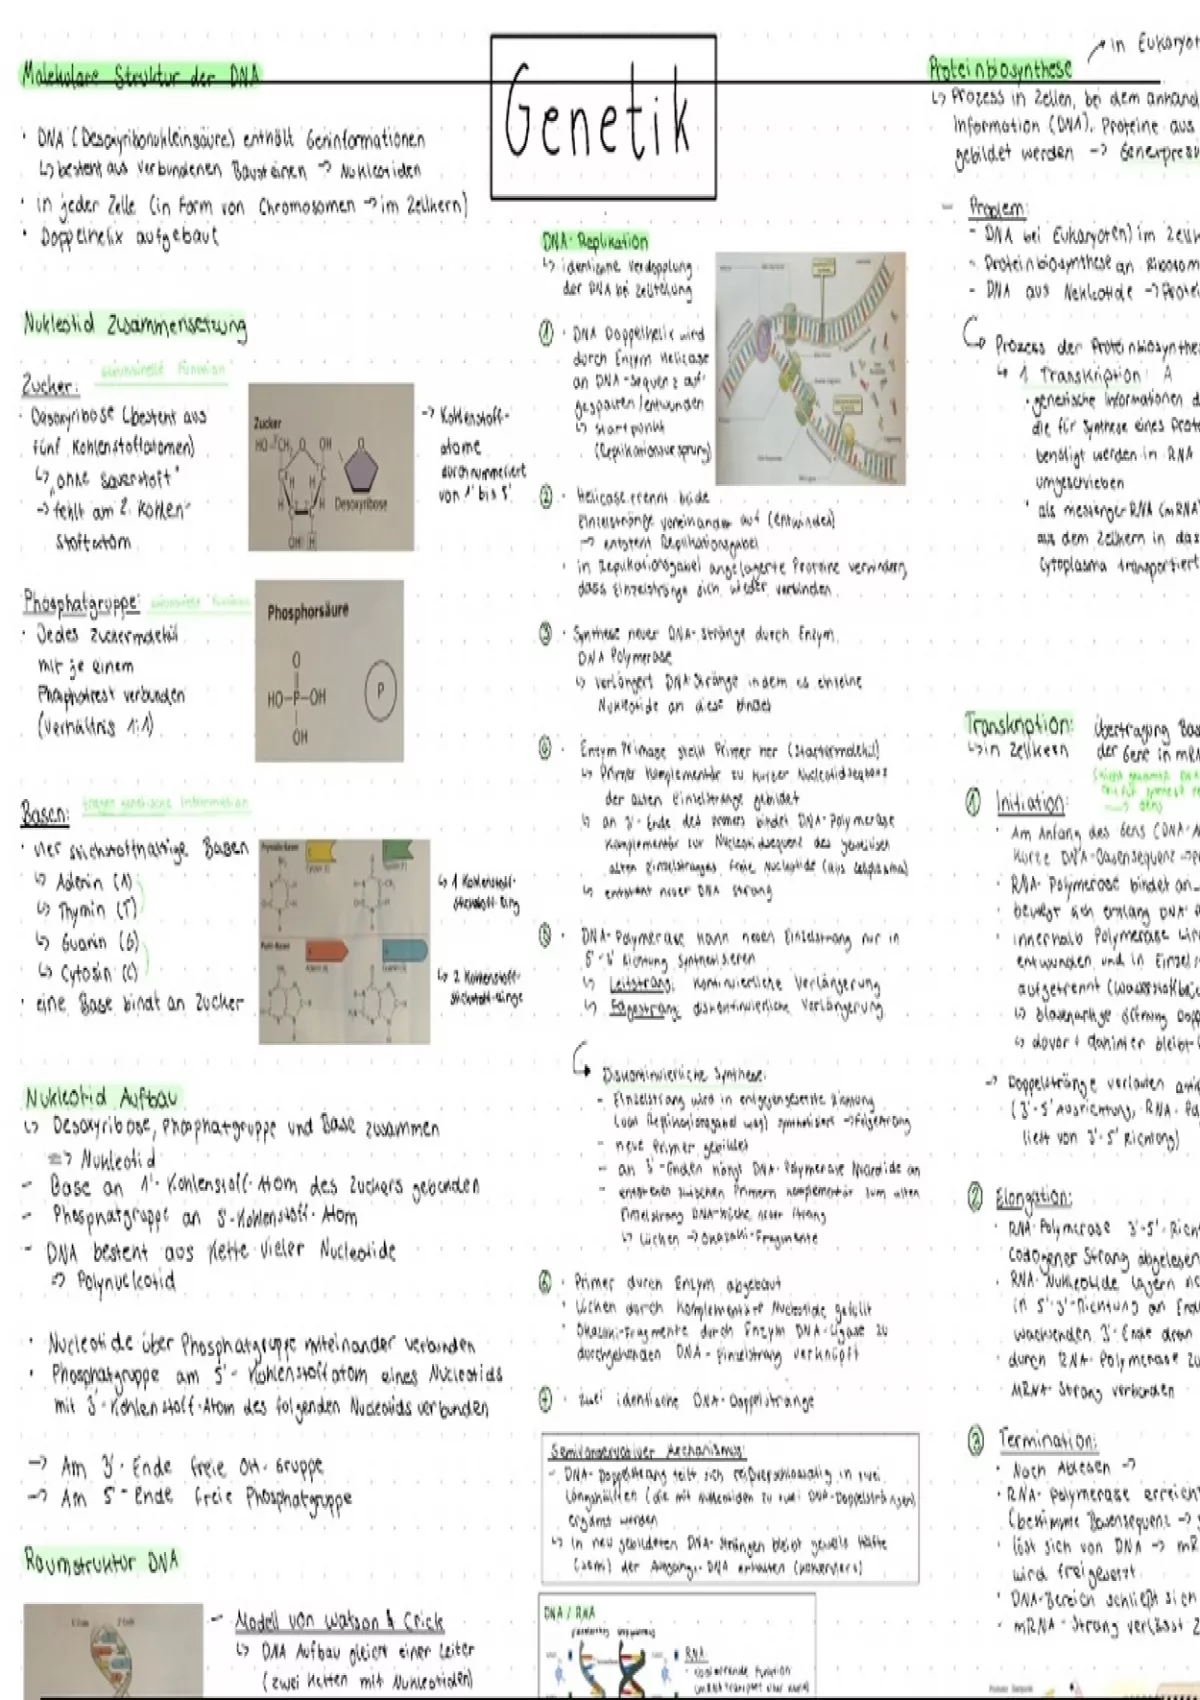 Genetik
Molekulare Struktur der DNA
· DNA (Desoxyribonukleinsäure) enthält Geninformationen
↳ besteht aus verbundenen Bausteinen → Nukleotiden
· in jeder Zelle (in Form von Chromosomen → im Zellkern)
· Doppelhelix aufgebaut
Nukleotid Zusammensetzung
Zucker:
· Desoxyribose (besteht aus
fünf Kohlenstoffatomen)
↳ "ohne Sauerstoff"
→ fehlt am 2. Kohlen-
stoffatom
Zucker
Desoxyribose
→ Kohlenstoff-
atome
durchnummeriert
von 1' bis 5'
Phosphatgruppe:
· Jedes Zuckermolekül
mit je einem
Phosphatrest verbunden
(Verhältnis 1:1)
Phosphorsäure
HO-P-OH
OH
P
Basen: tragen genetische Information
· vier stickstoffhaltige Basen
↳ Adenin (A)
↳ Thymin (T)
↳ Guanin (G)
↳ Cytosin (C)
· eine Base bindt an Zucker
↳ 1 Kohlenstoff-
stickstoff Ring
↳ 2 Kohlenstoff-
stickstoff-Ringe
Nukleotid Aufbau
↳ Desoxyribose, Phosphatgruppe und Base zusammen
=> Nukleotid
- Base an 1'-Kohlenstoff-Atom des Zuckers gebunden
- Phosphatgruppe an 5'-Kohlenstoff-Atom
- DNA besteht aus Kette vieler Nucleotide
=> Polynucleotid
· Nucleotide über Phosphatgruppe miteinander verbunden
· Phosphatgruppe am 5'-Kohlenstoffatom eines Nucleotids
mit 3'-Kohlenstoff-Atom des folgenden Nucleotids verbunden
→ Am 3'-Ende freie OH-Gruppe
→ Am 5'-Ende freie Phosphatgruppe
Raumstruktur DNA
- Modell von Watson & Crick
↳ DNA Aufbau gleicht einer Leiter
(zwei Ketten mit Nukleotiden)
DNA-Replikation
↳ identische Verdopplung
der DNA bei Zellteilung
① · DNA Doppelhelix wird
durch Enzym Helicase
an DNA-Sequenz auf-
gespalten/entwunden
↳ Startpunkt
(Replikationsursprung)
② · Helicase trennt beide
Einzelstränge voneinander auf (entwinden)
→ entsteht Replikationsgabel
· in Replikationsgabel angelagerte Proteine verhindern,
dass Einzelstränge sich wieder verbinden
③ · Synthese neuer DNA-Stränge durch Enzym
DNA Polymerase
↳ verlängert DNA Stränge indem es einzelne
Nukleotide an diese bindet
④ · Enzym Primase stellt Primer her (Startermolekül)
↳ Primer komplementär zu kurzer Nucleotidsequenz
der alten Einzelstränge gebildet
↳ an 3'-Ende des Primers bindet DNA-Polymerase
komplementär zur Nucleotidsequenz des jeweiligen
alten Einzelstranges freie Nucleotide (aus Zellplasma)
↳ entsteht neuer DNA Strang
⑤ · DNA-Polymerase kann neuen Einzelstrang nur in
5'-3' Richtung synthetisieren
↳ Leitstrang: kontinuierliche Verlängerung
↳ Folgestrang: diskontinuierliche Verlängerung
Diskontinuierliche Synthese:
- Einzelstrang wird in entgegengesetzte Richtung
(von Replikationsgabel weg) synthetisiert → Folgestrang
- neue Primer gebildet
- an 3'-Enden hängt DNA-Polymerase Nucleotide an
- entstehen zwischen Primern komplementär zum alten
Einzelstrang DNA-Stücke, neuer Strang
↳ Lücken → Okazaki-Fragmente
⑥ · Primer durch Enzym abgebaut
· Lücken durch komplementäre Nucleotide gefüllt
· Okazaki-Fragmente durch Enzym DNA-Ligase zu
durchgehenden DNA-Einzelstrang verknüpft
⑦ · zwei identische DNA-Doppelstränge
Semikonservativer Mechanismus:
- DNA-Doppelstrang teilt sich reißverschlussartig in zwei
Längshälften (die mit Nukleotiden zu zwei DNA-Doppelsträngen)
ergänzt werden
↳ In neu gebildeten DNA-Strängen bleibt jeweils Hälfte
(semi) der Ausgangs-DNA erhalten (konserviert)
DNA / RNA
RNA:
Proteinbiosynthese
in Eukaryot
↳ Prozess in Zellen, bei dem anhand
Information (DNA), Proteine aus
gebildet werden → Genexpressi
- Problem:
- DNA bei Eukaryoten) im Zellk
- Proteinbiosynthese an Ribosom
- DNA aus Nukleotide → Protei
Prozess der Proteinbiosynthe
↳ 1 Transkription: A
· genetische Informationen d
die für Synthese eines Prote
benötigt werden in RNA
umgeschrieben
· als messenger RNA (mRNA)
aus dem Zellkern in das
Cytoplasma transportiert
Transkription:
↳ in Zellkern
Übertragung Bas
der Gene in mRN
① Initiation:
· Am Anfang des Gens (DNA-A
kurze DNA-Basensequenz →
· RNA-Polymerase bindet an
· bewegt sich entlang DNA-
· innerhalb Polymerase wir
entwunden und in Einzel
aufgetrennt (Wasserstoffbrü
↳ blasenartige Öffnung Dopp
↳ davor + dahinter bleibt
→ Doppelstränge verlaufen anti
(3'-5' Ausrichtung, RNA-Po
liest von 3'-5' Richtung)
② Elongation:
· RNA-Polymerase 3'-5'-Rich
codogener Strang abgelesen
· RNA-Nukleotide lagern
in 5'-3'-Richtung an End
wachsenden 3'-Ende dran
· durch RNA-Polymerase zu
mRNA-Strang verbunden
③ Termination:
· Nach Ablesen →
· RNA-Polymerase erreich
(bestimmte Basensequenz →
· löst sich von DNA → mR
wird freigesetzt
· DNA-Bereich schließt sich
· mRNA-Strang verlässt Z